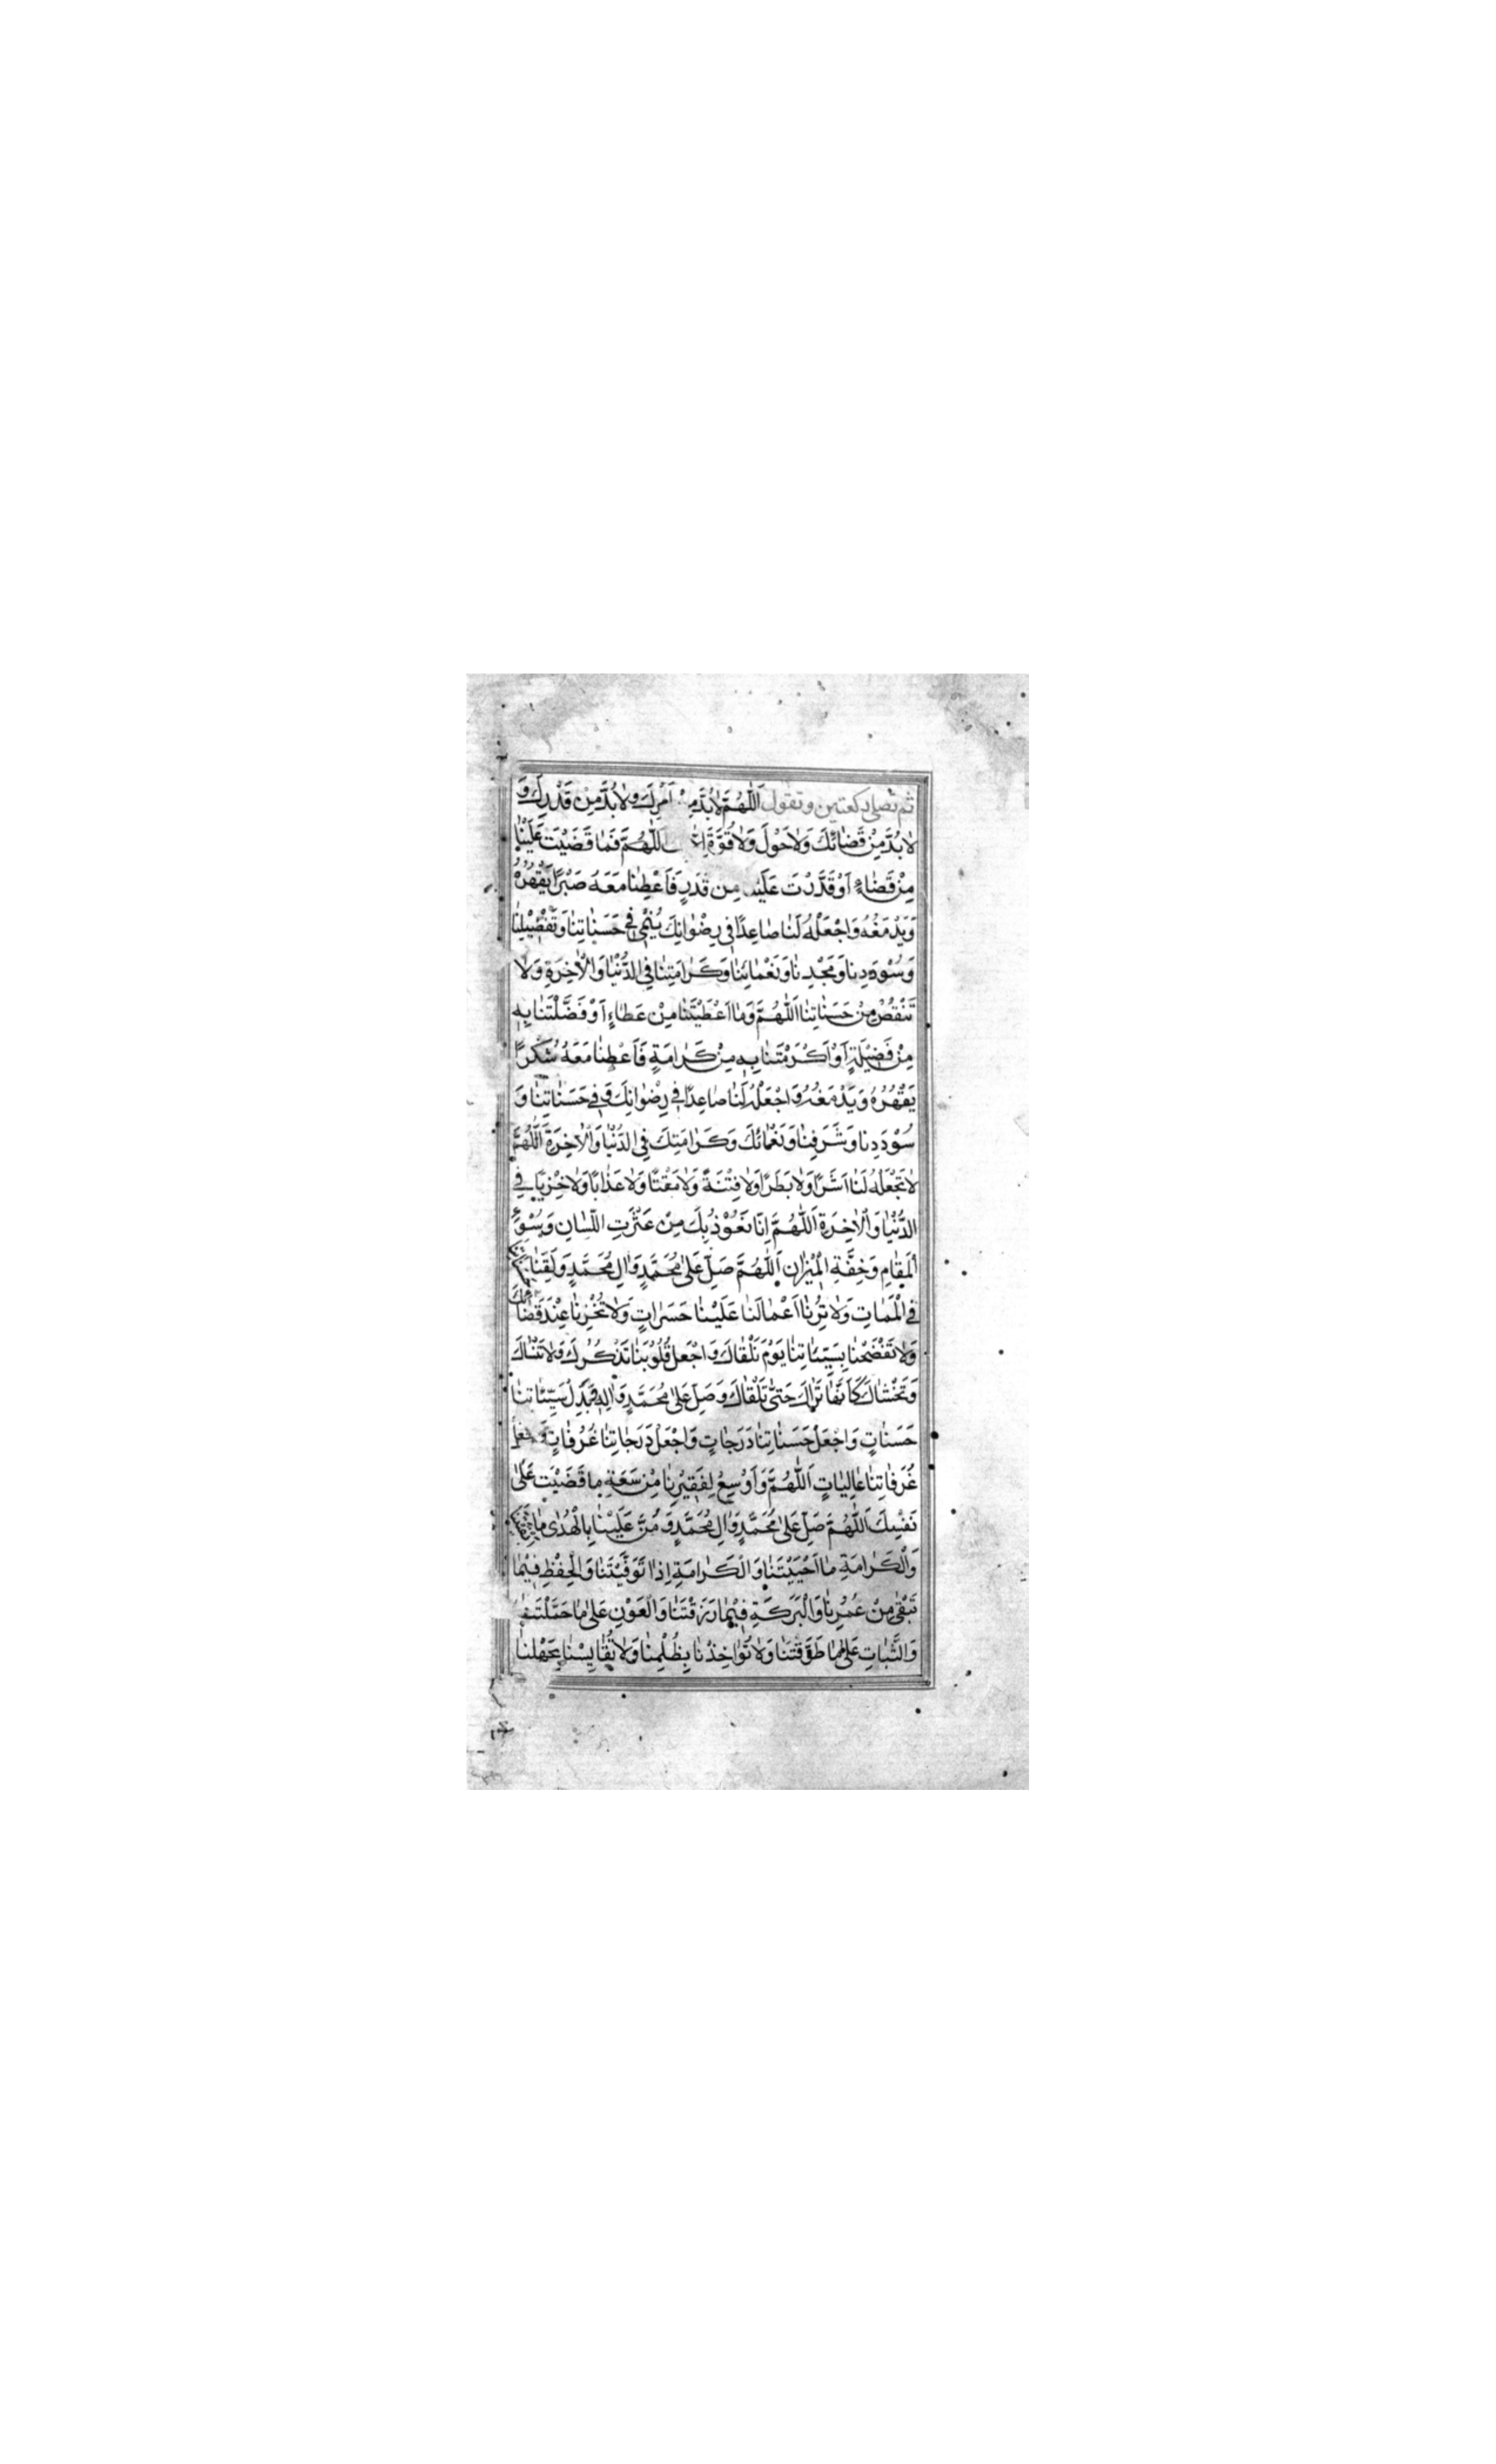 ثم تصلى ركعتين وتقول اَللّٰهُمَّ لاٰبُدَّ مِنْ اَمْرِكَ وَلاٰبُدَّ مِنْ قَدَرِكَ وَ
لاٰبُدَّ مِنْ قَضٰائِكَ وَلاٰحَوْلَ وَلاٰقُوَّةَ اِلاّٰ بِكَ اَللّٰهُمَّ فَمٰا قَضَيْتَ عَلَيْنٰا
مِنْ قَضٰاءٍ اَوْ قَدَّرْتَ عَلَيْنٰا مِن قَدَرٍ فَاَعْطِنٰا مَعَهُ صَبْرًا يَقْهَرُهُ
وَيَدْمَغُهُ وَاجْعَلْهُ لَنٰا صٰاعِدًا فِي رِضْوٰانِكَ يُنْمٰى فِي حَسَنٰاتِنٰا وَتَفْضِيْلِنٰا
وَسُوْدَدِنٰا وَمَجْدِنٰا وَنَعْمٰائِنٰا وَكَرٰامَتِنٰا فِي الدُّنْيٰا وَالْاٰخِرَةِ وَلاٰ
تَنْقُصْ مِنْ حَسَنٰاتِنٰا اَللّٰهُمَّ وَمٰا اَعْطَيْتَنٰا مِنْ عَطٰاءٍ اَوْ فَضَّلْتَنٰا بِهِ
مِنْ فَضِيْلَةٍ اَوْ اَكْرَمْتَنٰا بِهِ مِنْ كَرٰامَةٍ فَاَعْطِنٰا مَعَهُ شُكْرًا
يَقْهَرُهُ وَيَدْمَغُهُ وَاجْعَلْهُ لَنٰا صٰاعِدًا فِي رِضْوٰانِكَ وَفِي حَسَنٰاتِنٰا وَ
سُوْدَدِنٰا وَشَرَفِنٰا وَنَعْمٰائِكَ وَكَرٰامَتِكَ فِي الدُّنْيٰا وَالْاٰخِرَةِ اَللّٰهُمَّ
لاٰتَجْعَلْهُ لَنٰا اَشَرًا وَلاٰ بَطَرًا وَلاٰ فِتْنَةً وَلاٰ مَقْتًا وَلاٰ عَذٰابًا وَلاٰ خِزْيًا فِي
الدُّنْيٰا وَالْاٰخِرَةِ اَللّٰهُمَّ اِنّٰا نَعُوْذُ بِكَ مِنْ عَثْرَتِ اللِّسٰانِ وَسُوْءِ
الْمَقٰامِ وَخِفَّةِ الْمِيْزٰانِ اَللّٰهُمَّ صَلِّ عَلىٰ مُحَمَّدٍ وَاٰلِ مُحَمَّدٍ وَلَقِّنٰا
فِي الْمَمٰاتِ وَلاٰ تُرِنٰا اَعْمٰالَنٰا عَلَيْنٰا حَسَرٰاتٍ وَلاٰ تُخْزِنٰا عِنْدَ قَضٰائِكَ
وَلاٰ تَفْضَحْنٰا بِسَيِّئٰاتِنٰا يَوْمَ نَلْقٰاكَ وَاجْعَلْ قُلُوْبَنٰا تَذْكُرُكَ وَلاٰ تَنْسٰاكَ
وَتَخْشٰاكَ كَاَنَّهٰا تَرٰاكَ حَتّٰى تَلْقٰاكَ وَصَلِّ عَلىٰ مُحَمَّدٍ وَاٰلِهِ وَبَدِّلْ سَيِّئٰاتِنٰا
حَسَنٰاتٍ وَاجْعَلْ حَسَنٰاتِنٰا دَرَجٰاتٍ وَاجْعَلْ دَرَجٰاتِنٰا غُرُفٰاتٍ وَاجْعَلْ
غُرَفٰاتِنٰا عٰالِيٰاتٍ اَللّٰهُمَّ وَاَوْسِعْ لِفَقِيْرِنٰا مِنْ سَعَةِ مٰا قَضَيْتَ عَلىٰ
نَفْسِكَ اَللّٰهُمَّ صَلِّ عَلىٰ مُحَمَّدٍ وَاٰلِ مُحَمَّدٍ وَمُنَّ عَلَيْنٰا بِالْهُدٰى مٰا
وَالْكَرٰامَةِ مٰا اَحْيَيْتَنٰا وَالْكَرٰامَةِ اِذٰا تَوَفَّيْتَنٰا وَالْحِفْظِ فِيْمٰا
تَبْقٰى مِنْ عُمُرِنٰا وَالْبَرَكَةِ فِيْمٰا رَزَقْتَنٰا وَالْعَوْنِ عَلىٰ مٰا حَمَّلْتَنٰا
وَالثَّبٰاتِ عَلىٰ مٰا طَوَّقْتَنٰا وَلاٰ تُؤٰاخِذْنٰا بِظُلْمِنٰا وَلاٰ تُقٰايِسْنٰا بِجَهْلِنٰا